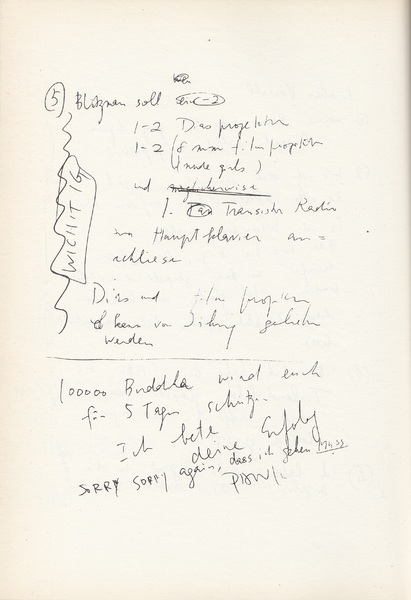 5 Blitzman soll ein-2
1-2 Diasprojektor
1-2 (8 mm film projektor
(nude girls)
und möglicherweise
1. Transistor Radio
im Hauptklavier an=
schliese
WICHTIG
Dias und film projektor
kann von geliehen
werden
100000 Buddha wird euch
für 5 Tagen schütz.
Ich bete
deine Erfolg
SORRY SORRY again, dass ich gehen muss
PAIK